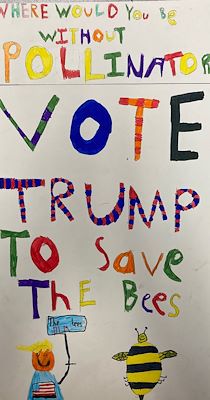 WHERE WOULD YOU BE
WITHOUT
POLLINATOR
VOTE
TRUMP
TO Save
THE Bees
the bees